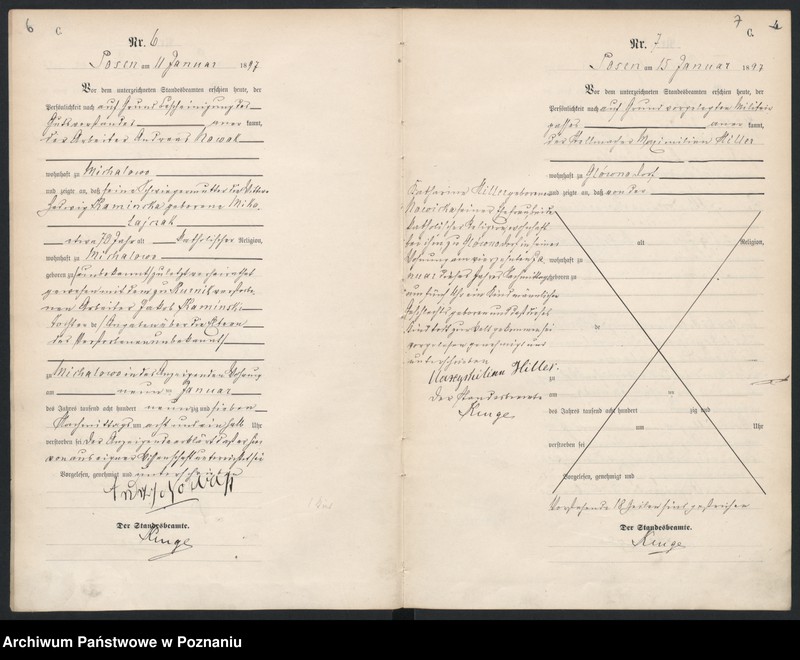 6
C.
Nr. 6
Posen am 11 Januar 1897
Vor dem unterzeichneten Standesbeamten erschien heute, der
Persönlichkeit nach auf Grund Bescheinigung des
Gutsvorstandes anerkannt,
der Arbeiter Andreas Nowak
wohnhaft zu Michalowo
und zeigte an, daß seine Schwiegermutter die Wittwe
Hedwig Kaminska geborene Miko
lajczak
etwa 70 Jahr alt katholischer Religion,
wohnhaft zu Michalowo
geboren zu unbekannt zuletzt verheirathet
gewesen mit dem zu Kurnik verstorbe
nen Arbeiter Jakob Kaminski
Tochter der Angaben über die Eltern
der Verstorbenen unbekannt
zu Michalowo in des Anzeigenden Wohnung
am neunten Januar
des Jahres tausend acht hundert neunzig und sieben
Nachmittags um acht und ein halb Uhr
verstorben sei. Der Anzeigende erklärt daß er hier
von aus eigener Wissenschaft unterrichtet sei
Vorgelesen, genehmigt und unterschrieben
Der Standesbeamte.
Runge
7
C.
Nr. 7
Posen am 15 Januar 1897
Vor dem unterzeichneten Standesbeamten erschien heute, der
Persönlichkeit nach auf Grund vorgelegten Militair
passes anerkannt,
der Stellmacher Maximilian Hiller
wohnhaft zu Glównodorf
und zeigte an, daß von der
Katharina Hiller geborenen
Nowicka seiner Ehefrau
katholischer Religion wohnhaft
bei ihm zu Glównodorf in seiner
Wohnung am vierzehnten Ja
nuar dieses Jahres Nachmittags
um fünf Uhr ein Kind männlichen
Geschlechts geboren und daß dieses
Kind todt zur Welt gekommen sei
vorgelesen genehmigt und
unterschrieben
Maxymilian Hiller.
Der Standesbeamte
Runge
alt Religion,
wohnhaft zu
geboren zu
de
zu
am ten
des Jahres tausend acht hundert zig und
um Uhr
verstorben sei
Vorgelesen, genehmigt und
Vorstehende Zeilen sind gestrichen
Der Standesbeamte.
Runge
Archiwum Państwowe w Poznaniu